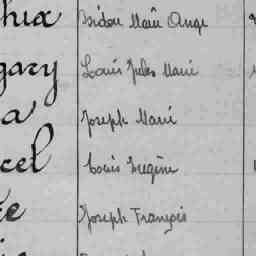 hix Isidore Marie Ange
gary Louis Jules Marie
a Joseph Marie
cel Louis Eugène
ée Joseph François